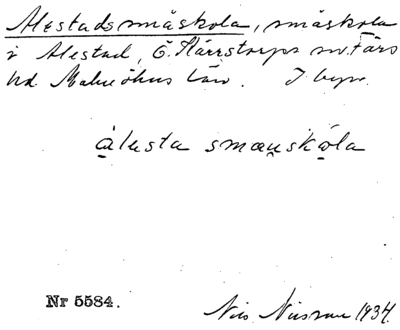 Alestads småskola, småskola
i Alestad, Ö. Kärrstorps sn. Färs
hd. Malmöhus län. I byn.
ålesta smauskåla
Nr 5584.
Nils Nilsson 1934.